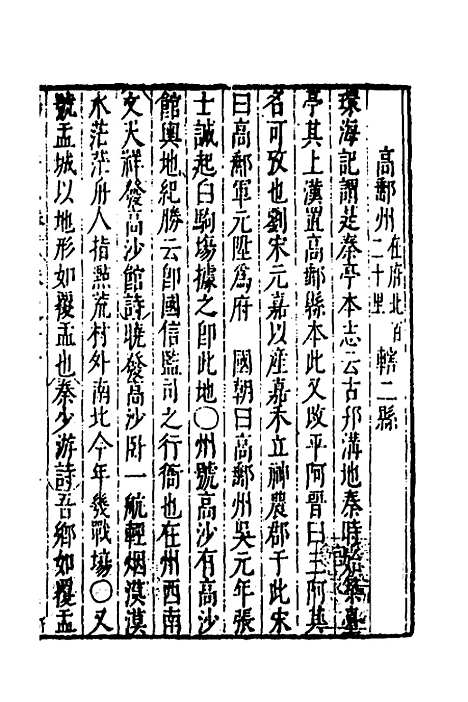 高郵州在府北百二十里轄二縣
環海記謂是秦亭本志云古邗溝地秦時築臺
亭其上漢置高郵縣本此又改平阿晋曰三阿其
名可攷也劉宋元嘉以産嘉禾立神農郡于此宋
曰高郵軍元陞爲府　國朝曰高郵州吳元年張
士誠起白駒塲據之卽此地〇州號高沙有高沙
館輿地紀勝云卽國信監司之行衙也在州西南
文天祥發高沙館詩曉發高沙卧一航輕烟漠漠
水茫茫舟人指點荒村外南北今年幾戰塲〇又
號盂城以地形如覆盂也秦少游詩吾鄉如覆盂